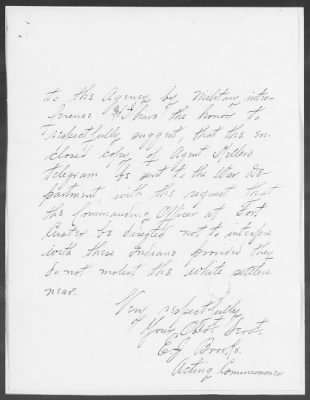 to the Agency by Military inter-
ference I have the honor to
respectfully suggest, that the en-
closed copy of Agent Keller's
telegram be sent to the War De-
partment with the request that
the Commanding Officer at Fort
Custer be directed not to interfere
with these Indians provided they
do not molest the white settlers
near.
Very respectfully
Your Obdt. Servt.
E J Brooks.
Acting Commissioner